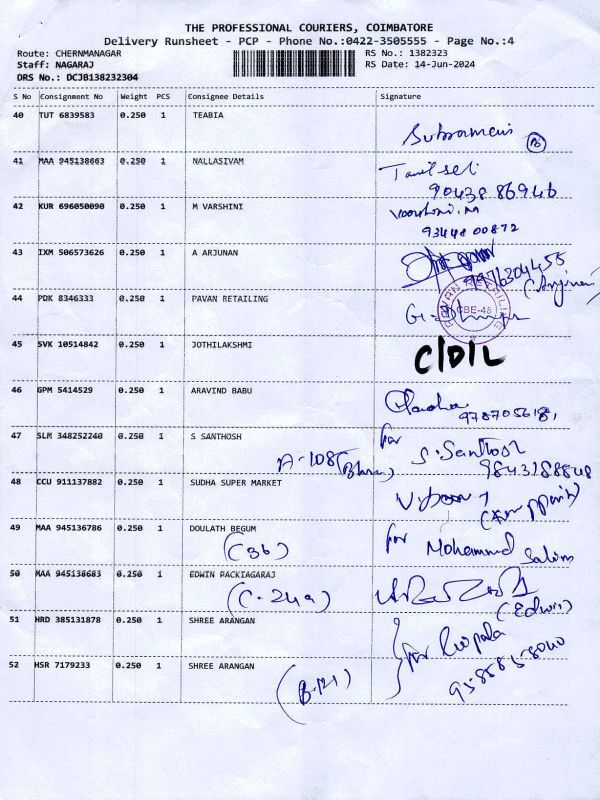 THE PROFESSIONAL COURIERS, COIMBATORE
Delivery Runsheet - PCP - Phone No.:0422-3505555 - Page No.:4
Route: CHERNMANAGAR RS No.: 1382323
Staff: NAGARAJ RS Date: 14-Jun-2024
DRS No.: DCJB138232304
S No Consignment No Weight PCS Consignee Details Signature
40 TUT 6839583 0.250 1 TEABIA
41 MAA 945138663 0.250 1 NALLASIVAM
90438 86946
42 KUR 696050090 0.250 1 M VARSHINI
93448 00872
43 IXM 506573626 0.250 1 A ARJUNAN
9976304455
(Arjunan)
44 PDK 8346333 0.250 1 PAVAN RETAILING
PAVAN RETAILING
CBE-48
45 SVK 10514842 0.250 1 JOTHILAKSHMI C/D/L
46 GPM 5414529 0.250 1 ARAVIND BABU
47 SLM 348252240 0.250 1 S SANTHOSH for S.Santhosh
A-108 9843188848
48 CCU 911137882 0.250 1 SUDHA SUPER MARKET
49 MAA 945136786 0.250 1 DOULATH BEGUM for Mohammed Salim
(C36)
50 MAA 945138683 0.250 1 EDWIN PACKIAGARAJ
(C-24a) (Edwin)
51 HRD 385131878 0.250 1 SHREE ARANGAN for Roopala
52 HSR 7179233 0.250 1 SHREE ARANGAN
(B-121)